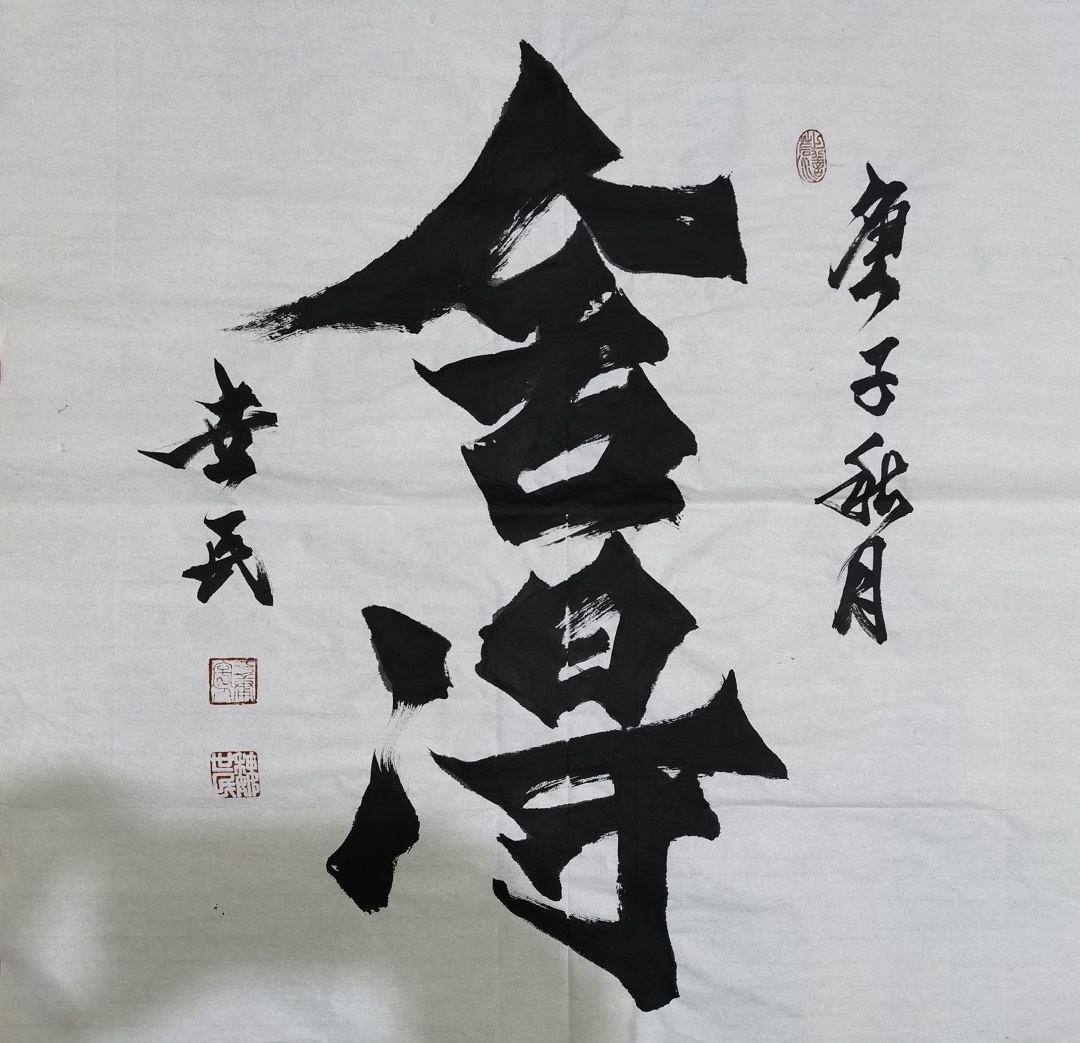 庚子秋月
舍得
世民